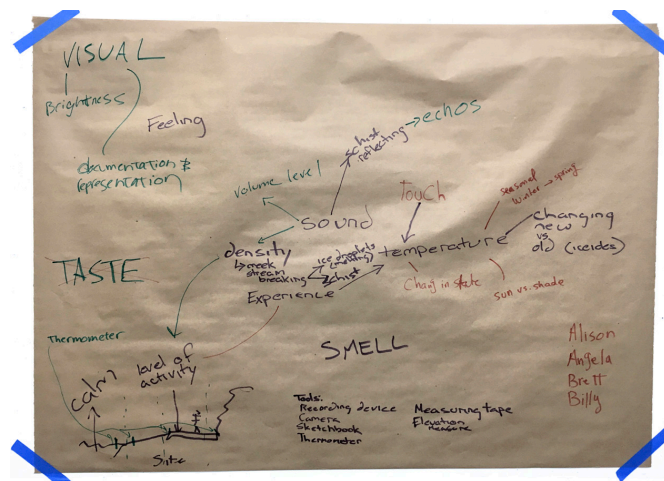 VISUAL
Brightness
Feeling
documentation &
representation
schist
reflecting
echos
volume level
Sound
Touch
seasonal
winter → spring
changing
new
vs
old (icicles)
temperature
density
creek
stream
breaking
ice droplets
(melting)
schist
Experience
Chang in state
sun vs. shade
TASTE
Thermometer
calm
level of
activity
Site
SMELL
Tools:
Recording device
Camera
Sketchbook
Thermometer
Measuring tape
Elevation
measure
Alison
Angela
Brett
Billy